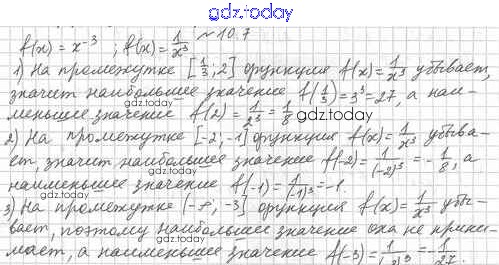 gdz.today
f(x) = x⁻³ ; f(x) = 1/x³ № 10.7
1) На промежутке [1/3; 2] функция f(x) = 1/x³ убывает,
значит наибольшее значение f(1/3) = 3³ = 27, а наи-
меньшее значение f(2) = 1/2³ = 1/8
gdz.today
gdz.today
gdz.today
2) На промежутке [-2; -1] функция f(x) = 1/x³ убыва-
ет, значит наибольшее значение f(-2) = 1/(-2)³ = -1/8, а
наименьшее значение f(-1) = 1/(-1)³ = -1.
gdz.today
gdz.today
3) На промежутке (-∞; -3] функция f(x) = 1/x³ убы-
вает, поэтому наибольшее значение она не прини-
мает, а наименьшее значение f(-3) = = -1/27.
gdz.today
gdz.today